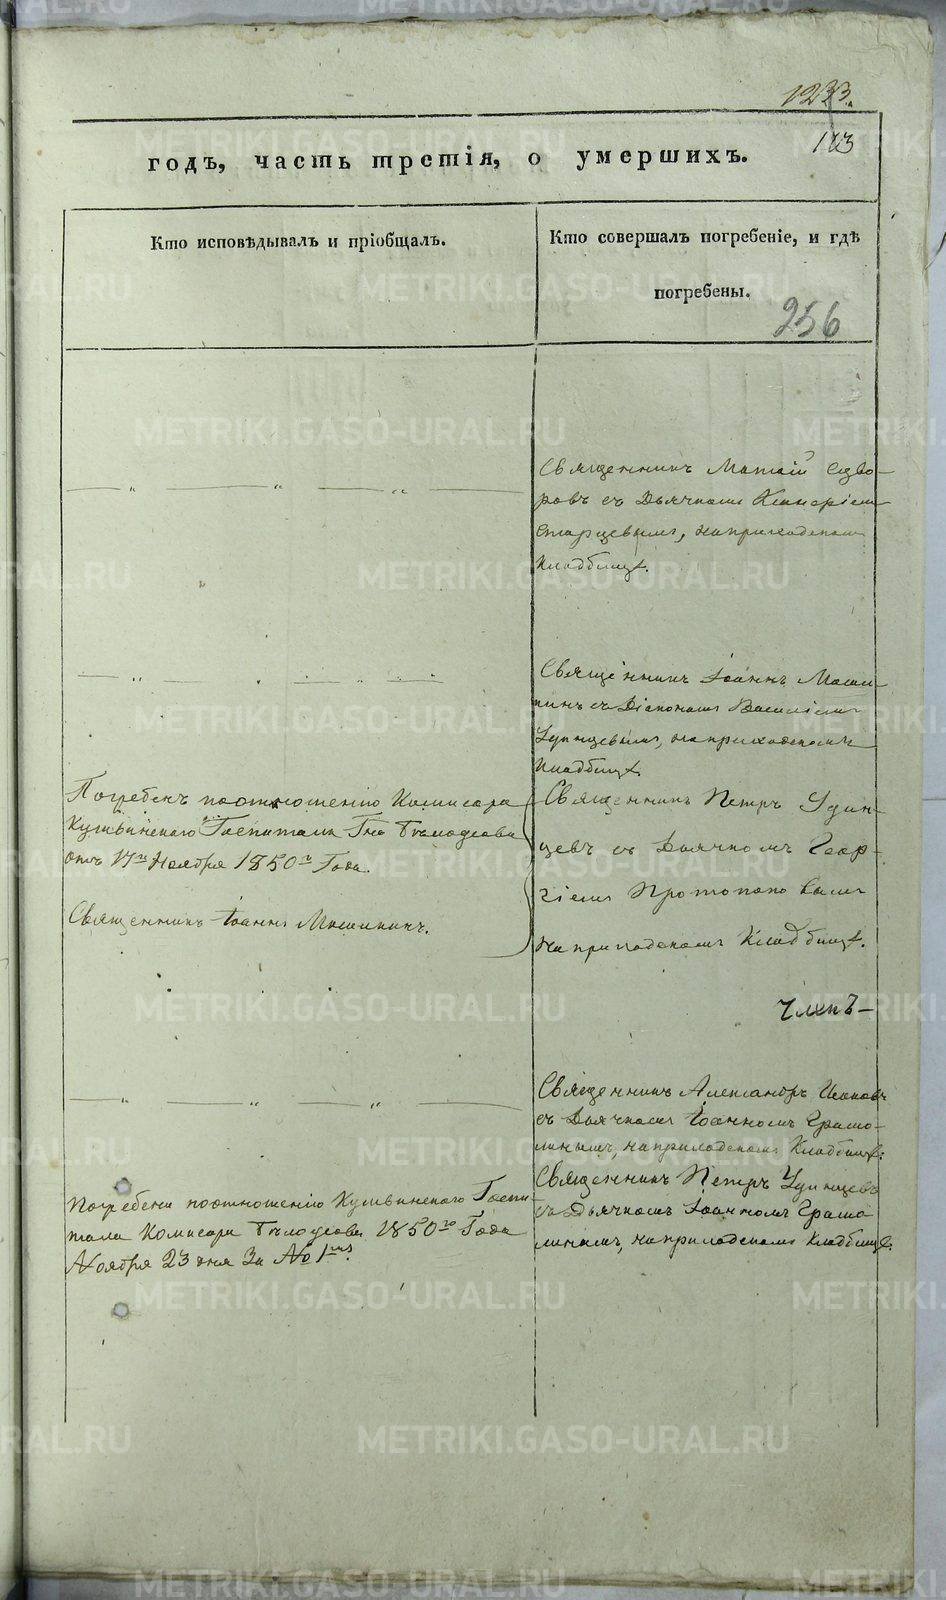 1233.
143
годъ, часть третія, о умершихъ.
Кто исповѣдывалъ и пріобщалъ.
Кто совершалъ погребеніе, и гдѣ
погребены.
256
Священникъ Матѳій Сдво-
ровъ съ Дьячкомъ
Старцевымъ, на приходскомъ
Кладбищѣ.
Священникъ Іоаннъ Маши-
кинъ съ Діакономъ Василіемъ
Удинцевымъ, на приходскомъ
Кладбищѣ.
Погребенъ по отношенію Комисара
Кушвинскаго Госпиталя Гна
отъ 17го Ноября 1850го Года.
Священникъ Іоаннъ Машикинъ.
Священникъ Петръ Удин-
цевъ съ Дьячкомъ Геор-
гіемъ Протопоповымъ
на приходскомъ Кладбищѣ.
Членъ
Священникъ Александръ
съ Дьячкомъ Іоанномъ Грамо-
линымъ, на приходскомъ Кладбищѣ.
Погребены по отношенію Кушвинскаго Госпи-
таля Комисара 1850го Года
Ноября 23 дня За №
Священникъ Петръ Удинцевъ
съ Дьячкомъ Іоанномъ Грамо
линымъ, на приходскомъ Кладбищѣ.
METRIKI.GASO-URAL.RU